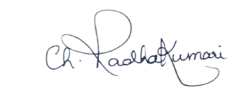 Ch. RadhaKumari